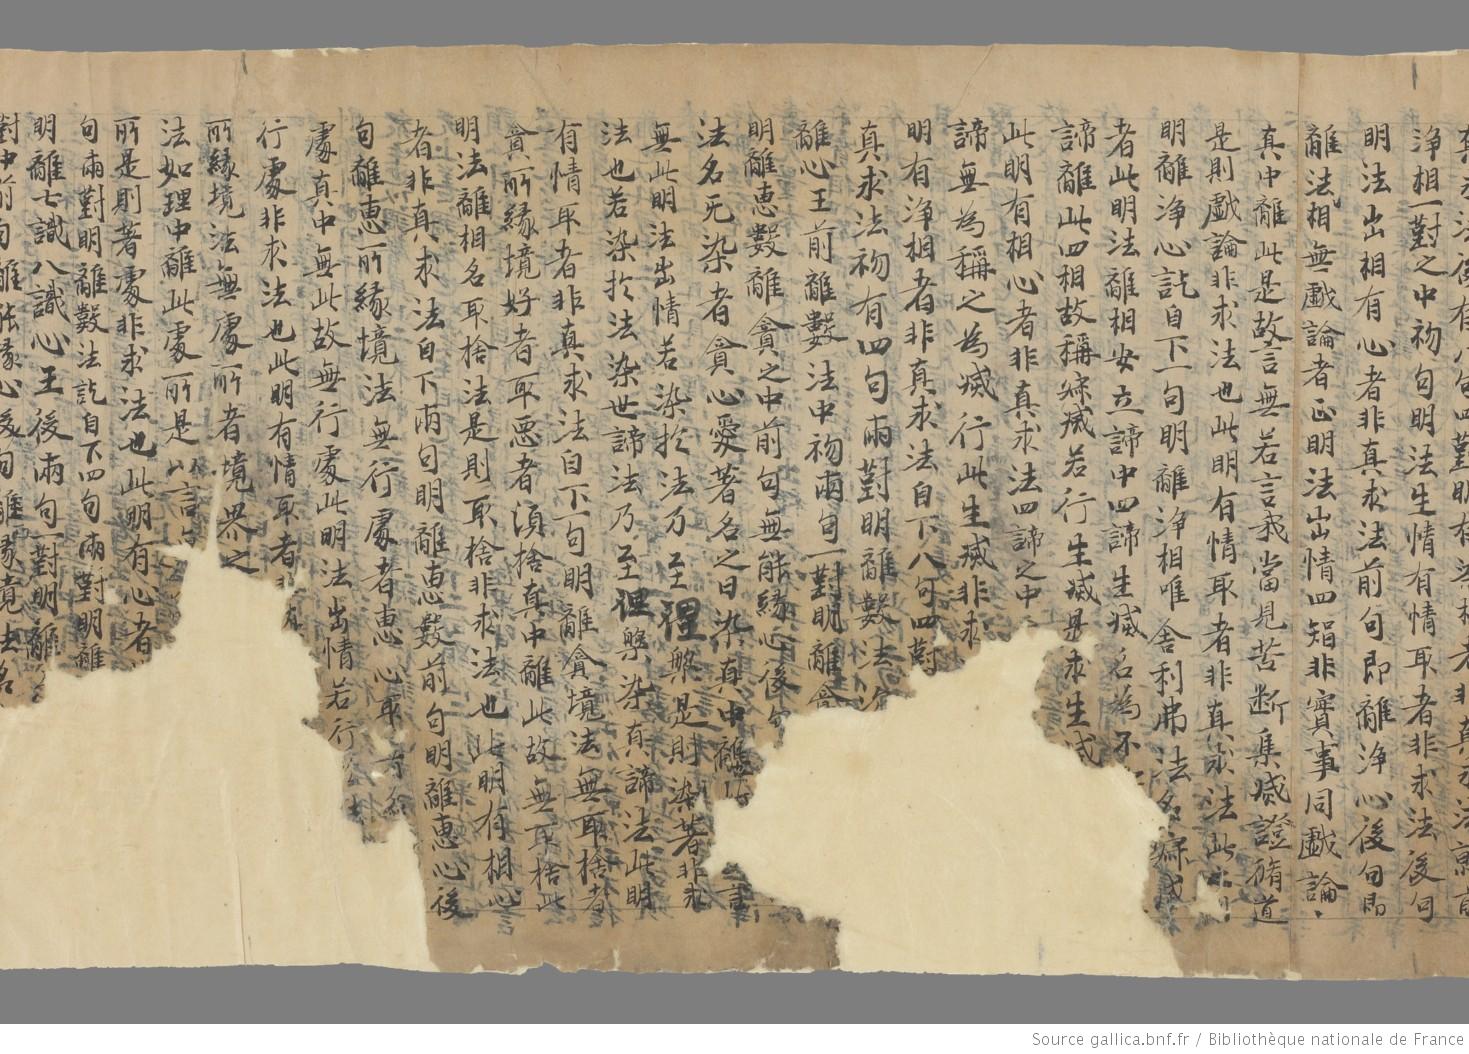 淨相一對之中初句明法生情有情取者非求法後句
明法出相有心者非真求法前句即離淨心後句即
離法相無戲論者正明法出情四智非實事同戲論
真中離此是故言無若言我當見苦斷集滅證脩道
是則戲論非求法也此明有情取者非真求法此
明離淨心訖自下一句明離淨相唯舍利弗法名寂滅
者此明法離相安立諦中四諦生滅名為不
諦離此四相故稱寂滅若行生滅是求生滅
此明有相心者非真求法四諦之中
諦無為稱之為滅行此生滅非求
明有淨相者非真求法自下八句四對
真求法初有四句兩對明離數法
離心王前離數法中初兩句一對明離貪
明離恵數離貪之中前句無能緣心後句
法名无染者貪心愛著名之曰染真中離 言
無此明法出情若染於法乃至涅槃是則染著非求
法也若染於法染世諦法乃至涅槃染真諦法此明
有情取者非真求法自下一句明離貪境法無取捨者
貪所緣境好者取惡者須捨真中離此故無取捨此
明法離相名取捨法是則取捨非求法也此明有相心
者非真求法自下兩句明離恵數前句明離恵心後
句離恵所緣境法無行處者恵心取
處真中無此故無行處此明法出情若行
行處非求法也此明有情取者
所緣境法無處所者境界之
法如理中離此處所是 言
所是則著處非求法也此明有心者
句兩對明離數法訖自下四句兩對明離
明離七識八識心王後兩句一對明離
對中前句離能緣心後句離緣境法名